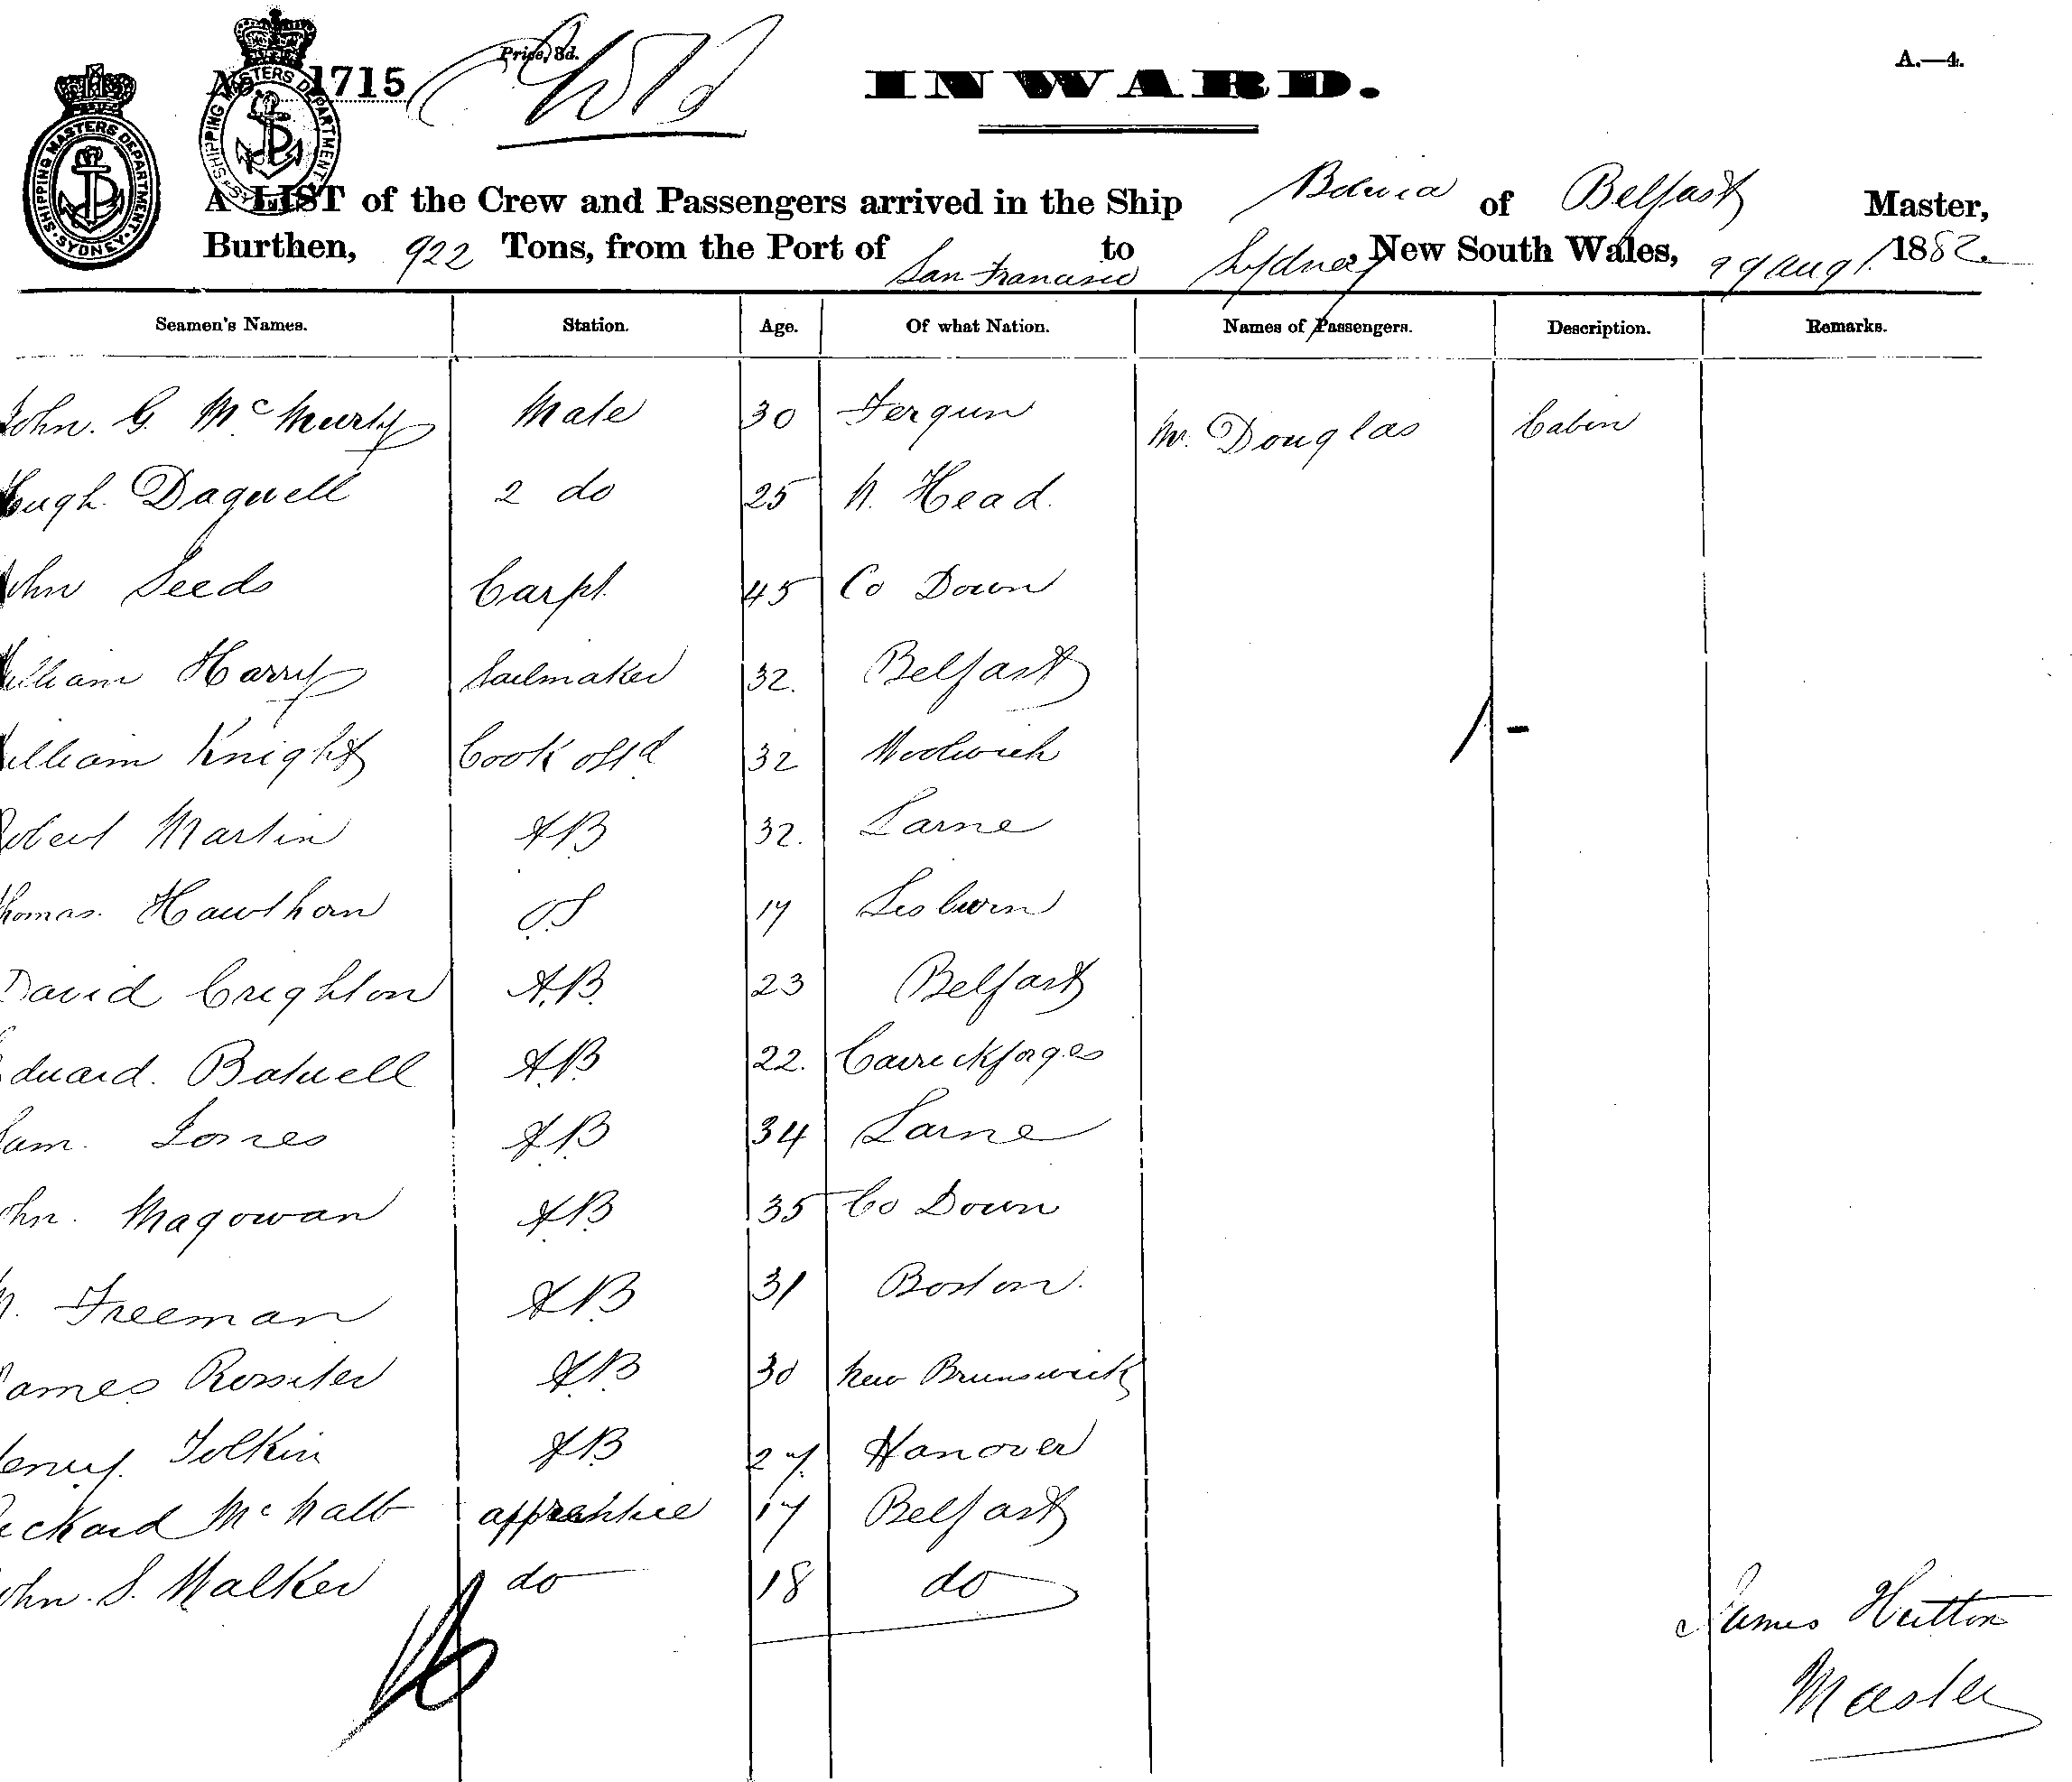 No. 1715
Price, 3d.
INWARD.
A.—4.
SHIPPING MASTERS DEPARTMENT · SYDNEY ·
SHIPPING MASTERS DEPARTMENT
A LIST of the Crew and Passengers arrived in the Ship of Belfast Master,
Burthen, 922 Tons, from the Port of San Francisco to Sydney, New South Wales, 29 Augt. 1882.
Seamen's Names. Station. Age. Of what Nation. Names of Passengers. Description. Remarks.
John. G. McMurty Mate 30 Fergun Mr. Douglas Cabin
Hugh. Dagwell 2 do 25 Head.
John Seeds Carpt. 45 Co Down
William Harry Sailmaker 32. Belfast
William Knight Cook & Std 32 Woolwich 1 -
Robert Martin AB 32. Larne
Thomas. Hawthorn O.S 17 Lisburn
David Crighton A.B. 23 Belfast
Edward. Batwell A.B. 22. Carrickforges
Sam. Jones A.B 34 Larne
John. Magowan A.B. 35 Co Down
Freeman A.B 31 Boston.
James Rossiter A.B 30 New Brunswick
Henry. Tolkin A.B 27. Hanover
Rickard McNalb apprentice 17 Belfast
John. S. Walker do 18 do
16
James Hutton
Master